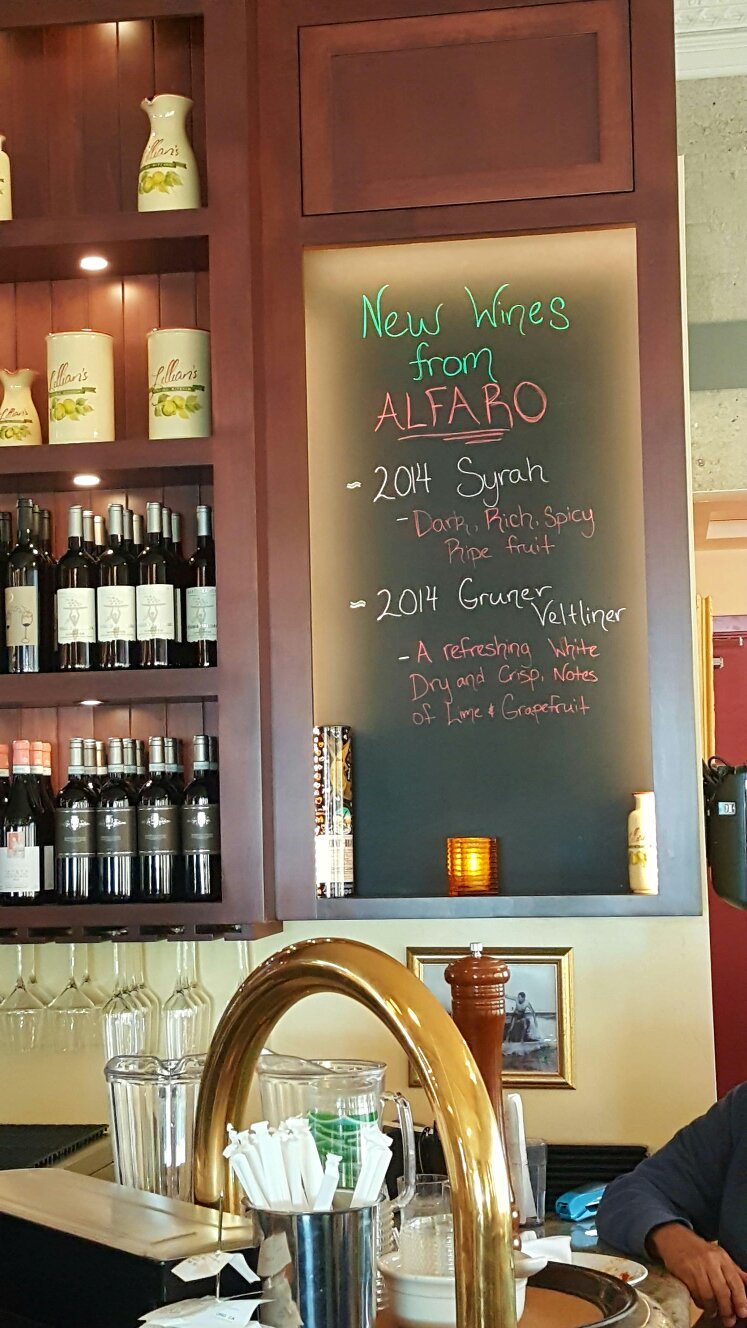 Lillian's
Lillian's
Lillian's
New Wines
from
ALFARO
~ 2014 Syrah
- Dark, Rich, Spicy
Ripe fruit
~ 2014 Gruner
Veltliner
- A refreshing White
Dry and Crisp, Notes
of Lime & Grapefruit